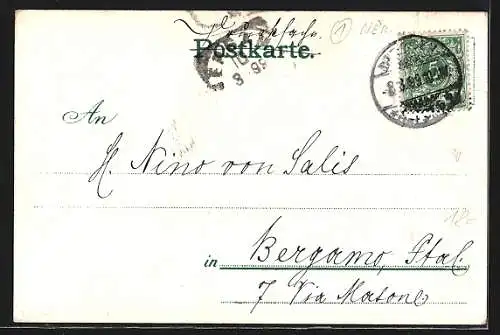 Drucksache
Postkarte.
An
H. Nino von Salis
in Bergamo, Ital.
7 Via Masone